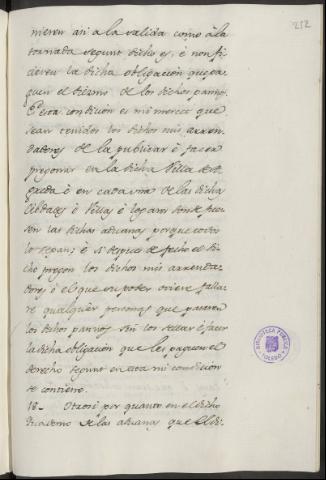 212
nieren asi a la salida como à la
tornada segunt dicho es, è non fi
cieren la dicha obligacion que pa-
guen el diesmo de los dichos pannos.
E esta condicion es mi merced que
sean tenidos los dichos mis arren-
dadores de la publicar è facer
pregonar en la dicha Villa de A
greda è en cada una de las dichas
Cibdades è Villas è logares donde
son las dichas aduanas porque todos
lo sepan; è si despues de fecho el di-
cho pregon los dichos mis arrenda-
dores ò el que su poder oviere falla-
re qualquier personas que pasaren
los dichos pannos sin los sellar è facer
la dicha obligacion que les paguen el
derecho segunt en esta mi condicion
se contiene.
18.. Otrosi por quanto en el dicho
Quaderno de las aduanas que el di-
BIBLIOTECA PUBLICA
TOLEDO